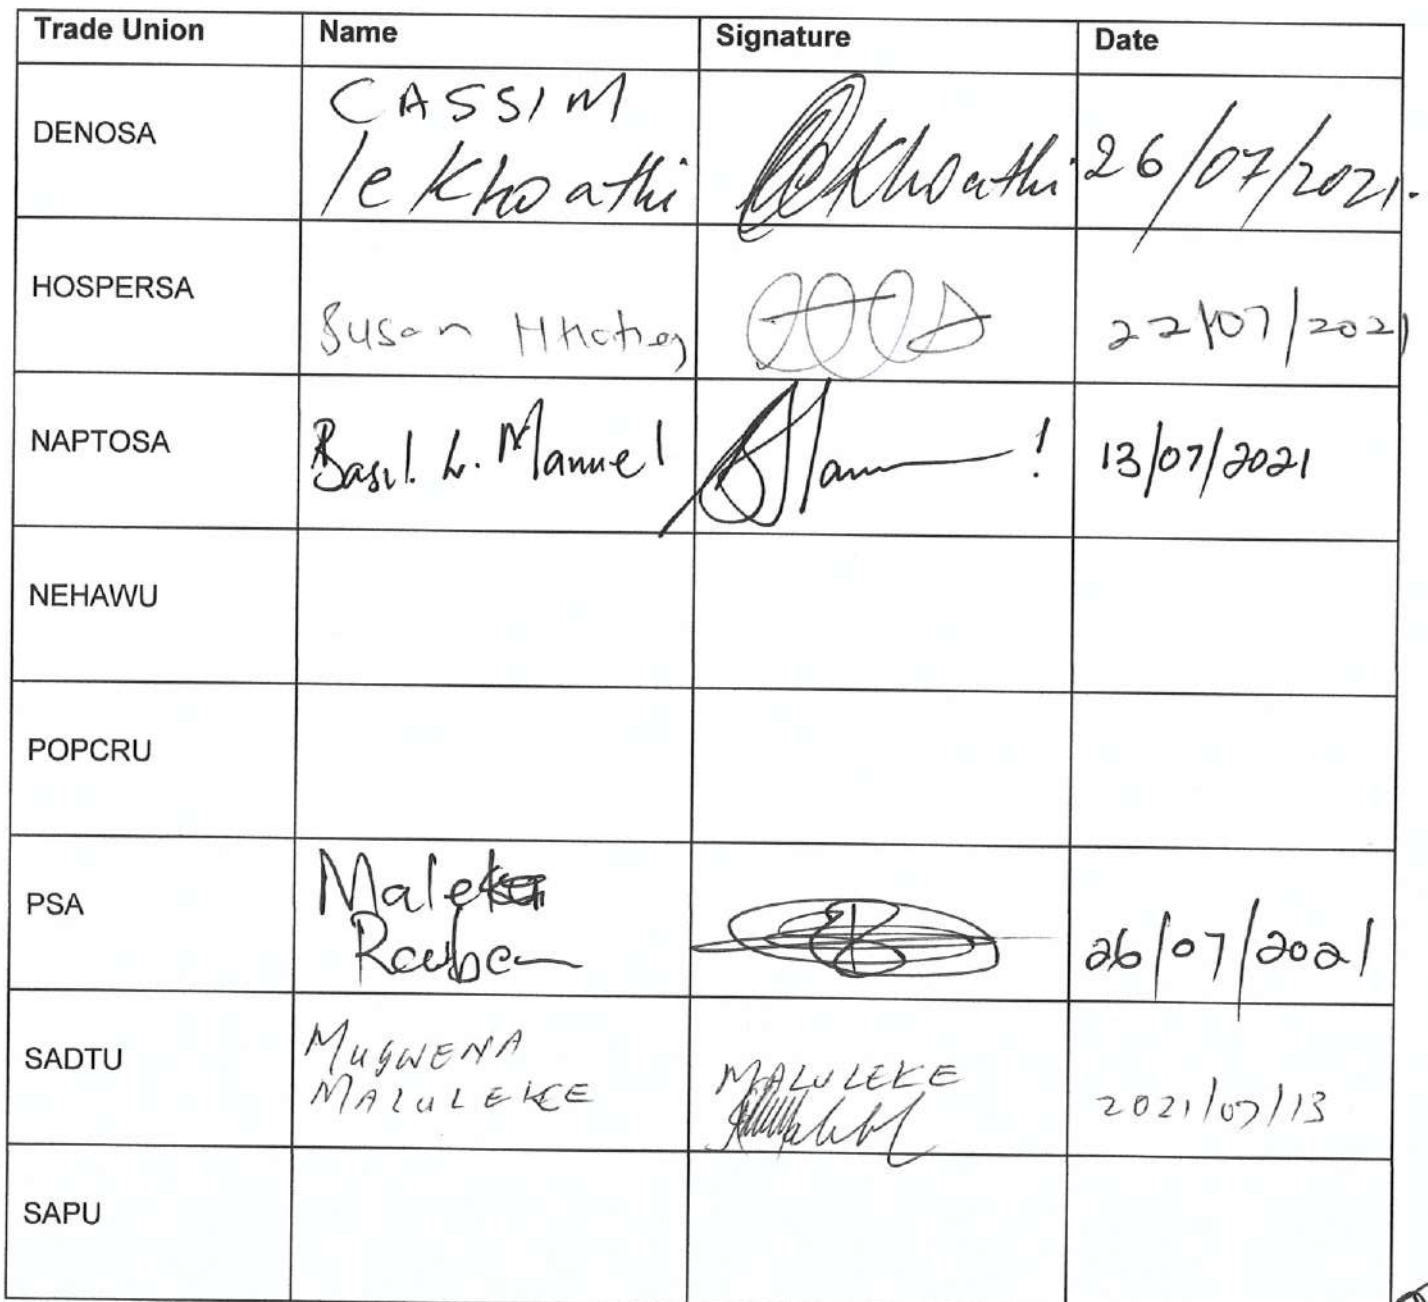 Trade Union Name Signature Date
DENOSA CASSIM
lekhoathi lekhoathi 26/07/2021.
HOSPERSA Susan 22/07/2021
NAPTOSA Basil L. Manuel 13/07/2021
NEHAWU
POPCRU
PSA Maleka
Reuben 26/07/2021
SADTU MUGWENA
MALULEKE MALULEKE 2021/07/13
SAPU